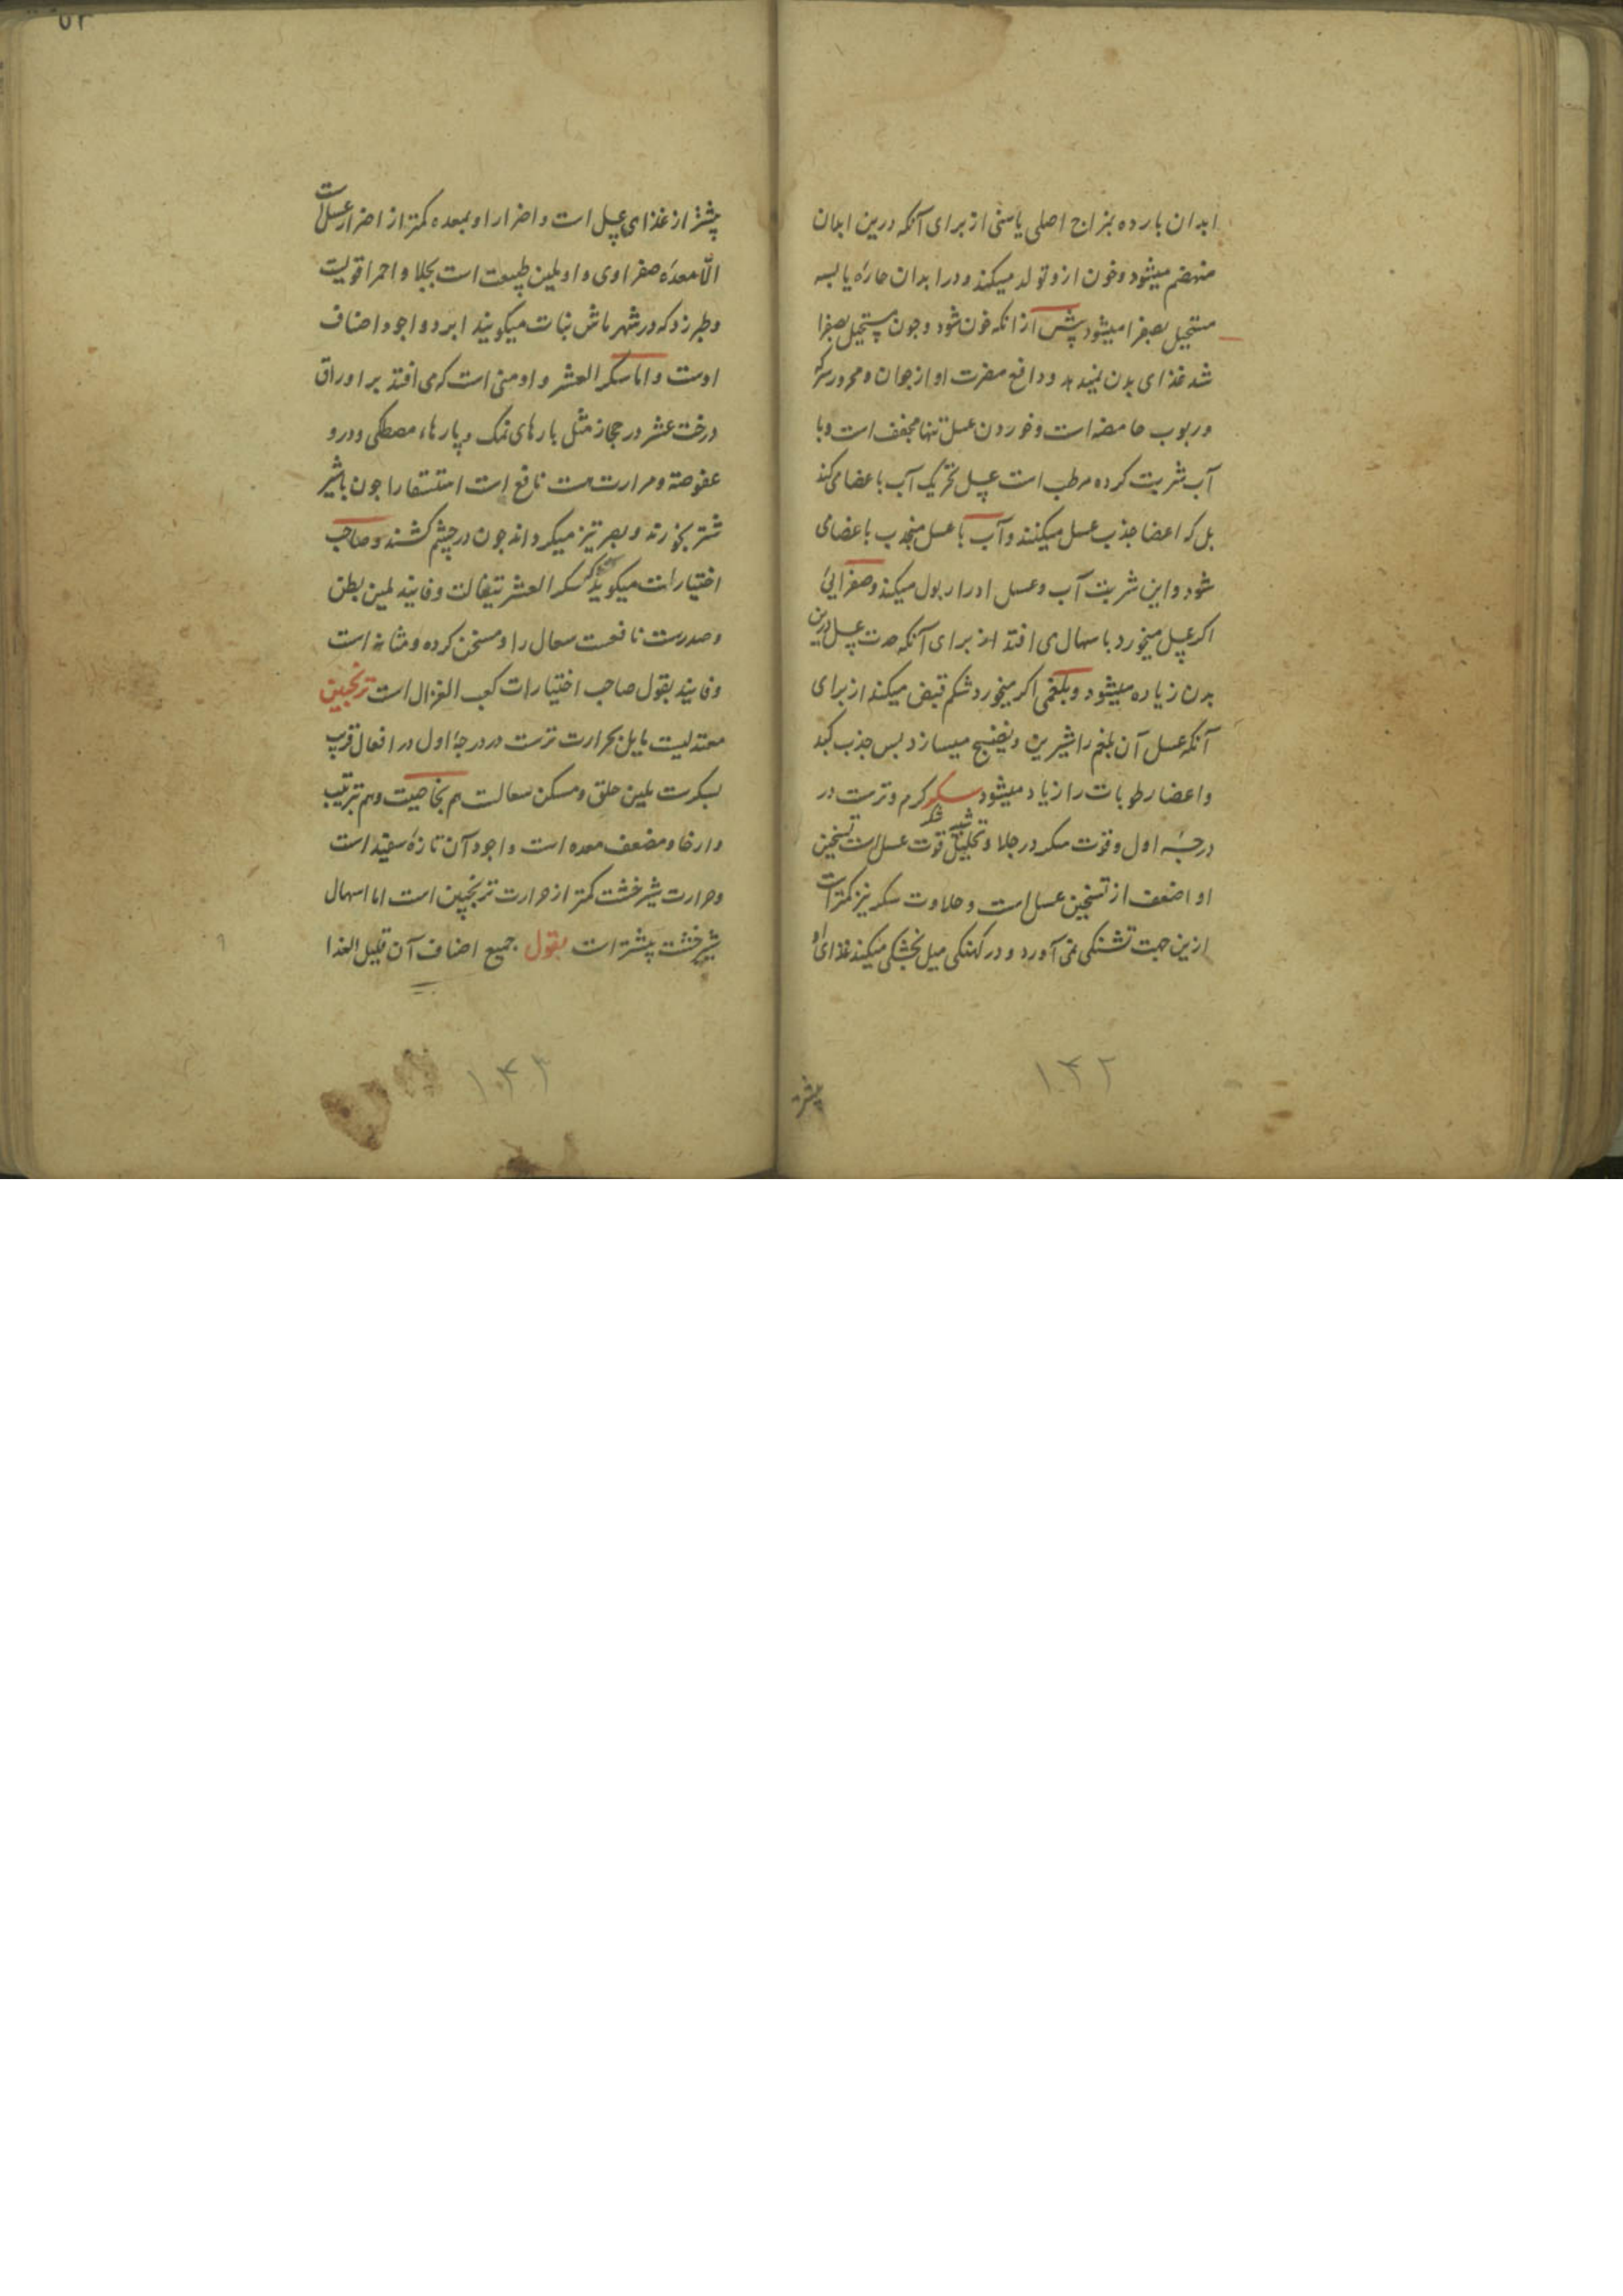 ابدان بارده بمزاج اصلی یا سنی از برای آنکه درین ابدان
منهضم میشود و خون ازو تولد میکند و در ابدان حاره یابسه
مستحیل بصفرا میشود پیش از انکه خون شود و چون مستحیل بصفرا
شد غذای بدن نمیدهد و دافع مضرت او از جوان و محرور سرکه
و ربوب حامضه است و خوردن عسل تنها مجفف است و با
آب شربت کرده مرطب است عسل تحریک آب باعضا می کند
بل که اعضا جذب عسل میکنند و آب با عسل منجذب باعضا می
شود و این شربت آب و عسل ادرار بول میکند و صفرایی
اکر عسل میخورد باسهال می افتد از برای آنکه حدت عسل درین
بدن زیاده میشود و بلغمی اکر میخورد شکم قبض میکند از برای
آنکه عسل آن بلغم را شیرین و نضیج میسازد بس جذب کبد
و اعضا رطوبات را زیاد میشود سکر کرم و ترست در
درجهٔ اول و قوت سکر در جلا و تحلیل قوت عسل است تسخین
او اضعف از تسخین عسل است و حلاوت سکر نیز کمتر است
ازین جهت تشنکی نمی آورد و در کهنکی میل بخشکی میکند غذای او
۱۳۲
بیشتر
۵۲
بیشتر از غذای عسل است و اضرار او بمعده کمتر از اضرار عسل است
الا معدهٔ صفراوی و او ملین طبیعت است بجلا و احمر اقویست
و طبرزد که در شهر ماش نبات میکویند ابرد و اجود اصناف
اوست و اما سکر العشر و او منی است که می افتد بر اوراق
درخت عشر در حجاز مثل بارهای نمک و پارهاء مصطکی و درو
عفوصة و مرارت هست نافع است استسقا را چون با شیر
شتر بخورند و بصر تیز میکرداند چون در چشم کشند و صاحب
اختیارات میکوید که سکر العشر تیغالت و فانیذ ملین بطن
و صدرست نافعست سعال را و مسخن کرده و مثانه است
و فانیذ بقول صاحب اختیارات کعب الغزال است ترنجبین
معتدلیست مایل بحرارت ترست در درجهٔ اول در افعال قریب
بسکرست ملین حلق و مسکن سعالست هم بخاصیت و هم بترتیب
و ارخا و مضعف معده است و اجود آن تازهٔ سفید است
و حرارت شیرخشت کمتر از حرارت ترنجبین است اما اسهال
شیرخشت بیشتر است بقول جمیع اصناف آن قلیل الغذا
۱۳۳